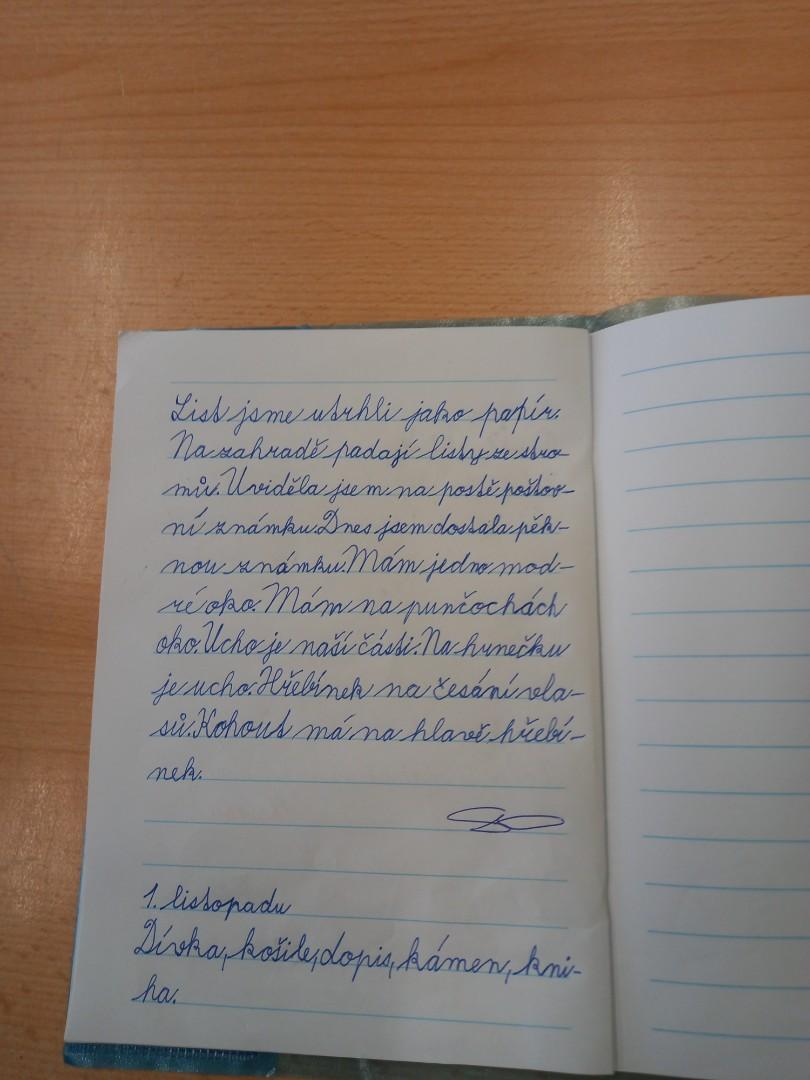 List jsme utrhli jako papír.
Na zahradě padají listy ze stro-
mův. Uviděla jsem na postě poštov-
ní známku. Dnes jsem dostala pěk-
nou známku. Mám jedno mod-
ré oko. Mám na punčochách
oko. Ucho je naší části. Na hrnečku
je ucho. Hřebínek na česání vla-
sů. Kohout má na hlavě hřebí-
nek.
1. listopadu
Dívka, košile, dopis, kámen, kni-
ha.